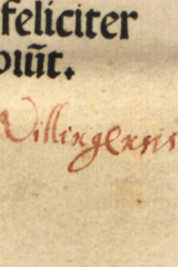 feliciter
ouñt.
Villingensis